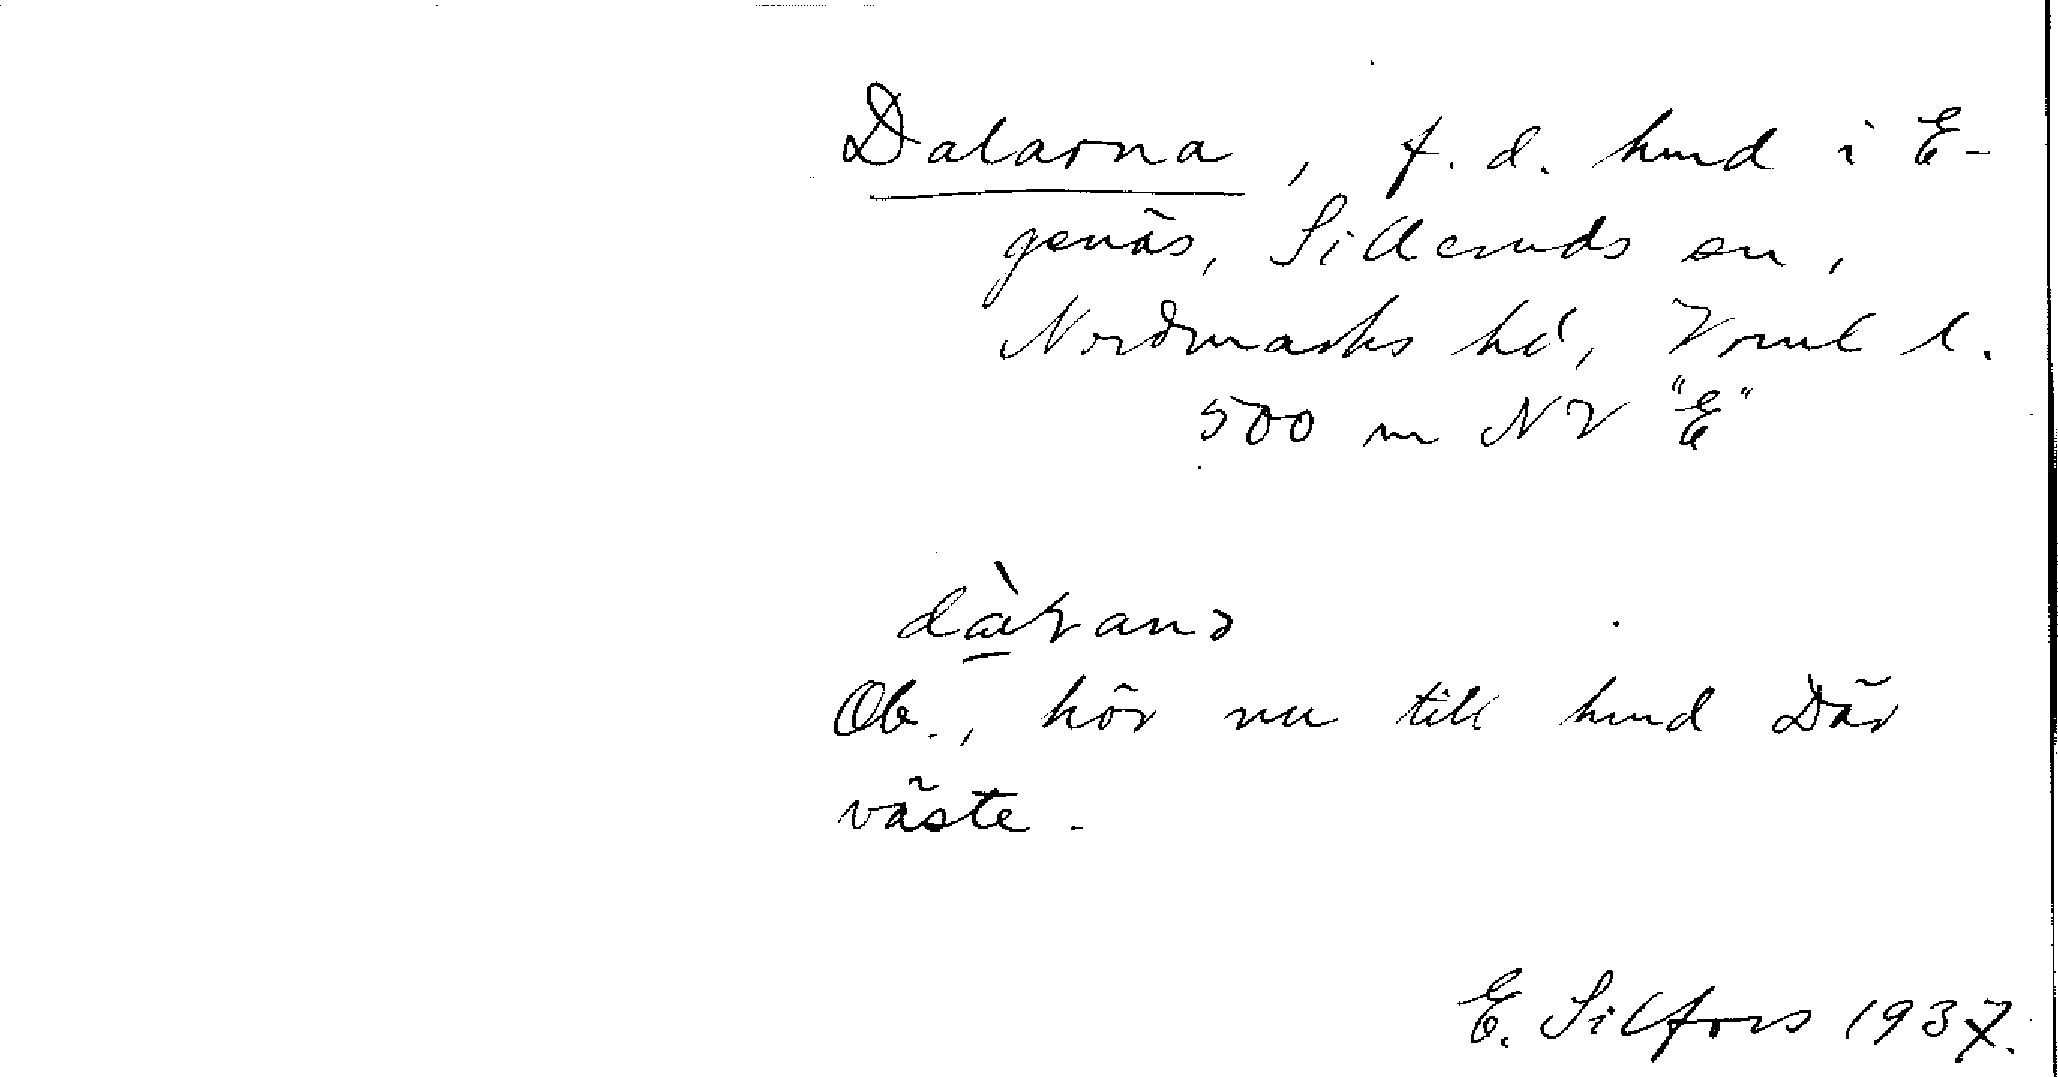 Dalarna, f.d. hmd i E-
genäs, Silleruds sn,
Nordmarks hd, Vrml l.
500 m NV "E"
Ob., hör nu till hmd Där
väste.
E. Silfors 1937.